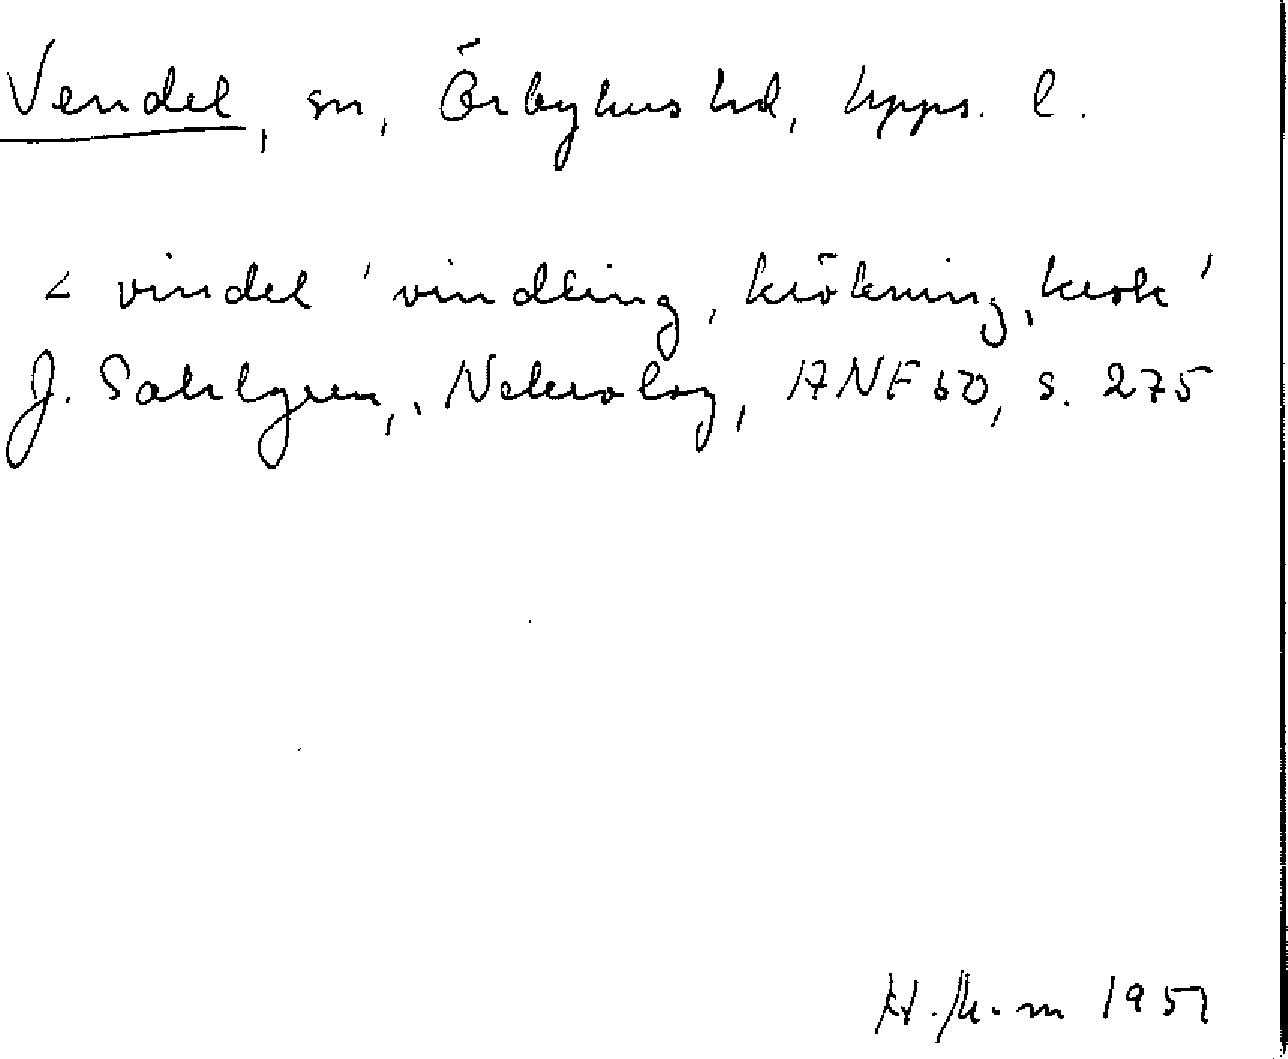 Vendel, sn, Örbyhus hd, Upps. l.
< vindel 'vindling, krökning, krok'
J. Sahlgren, Nekrolog, ANF 60, s. 275
1951